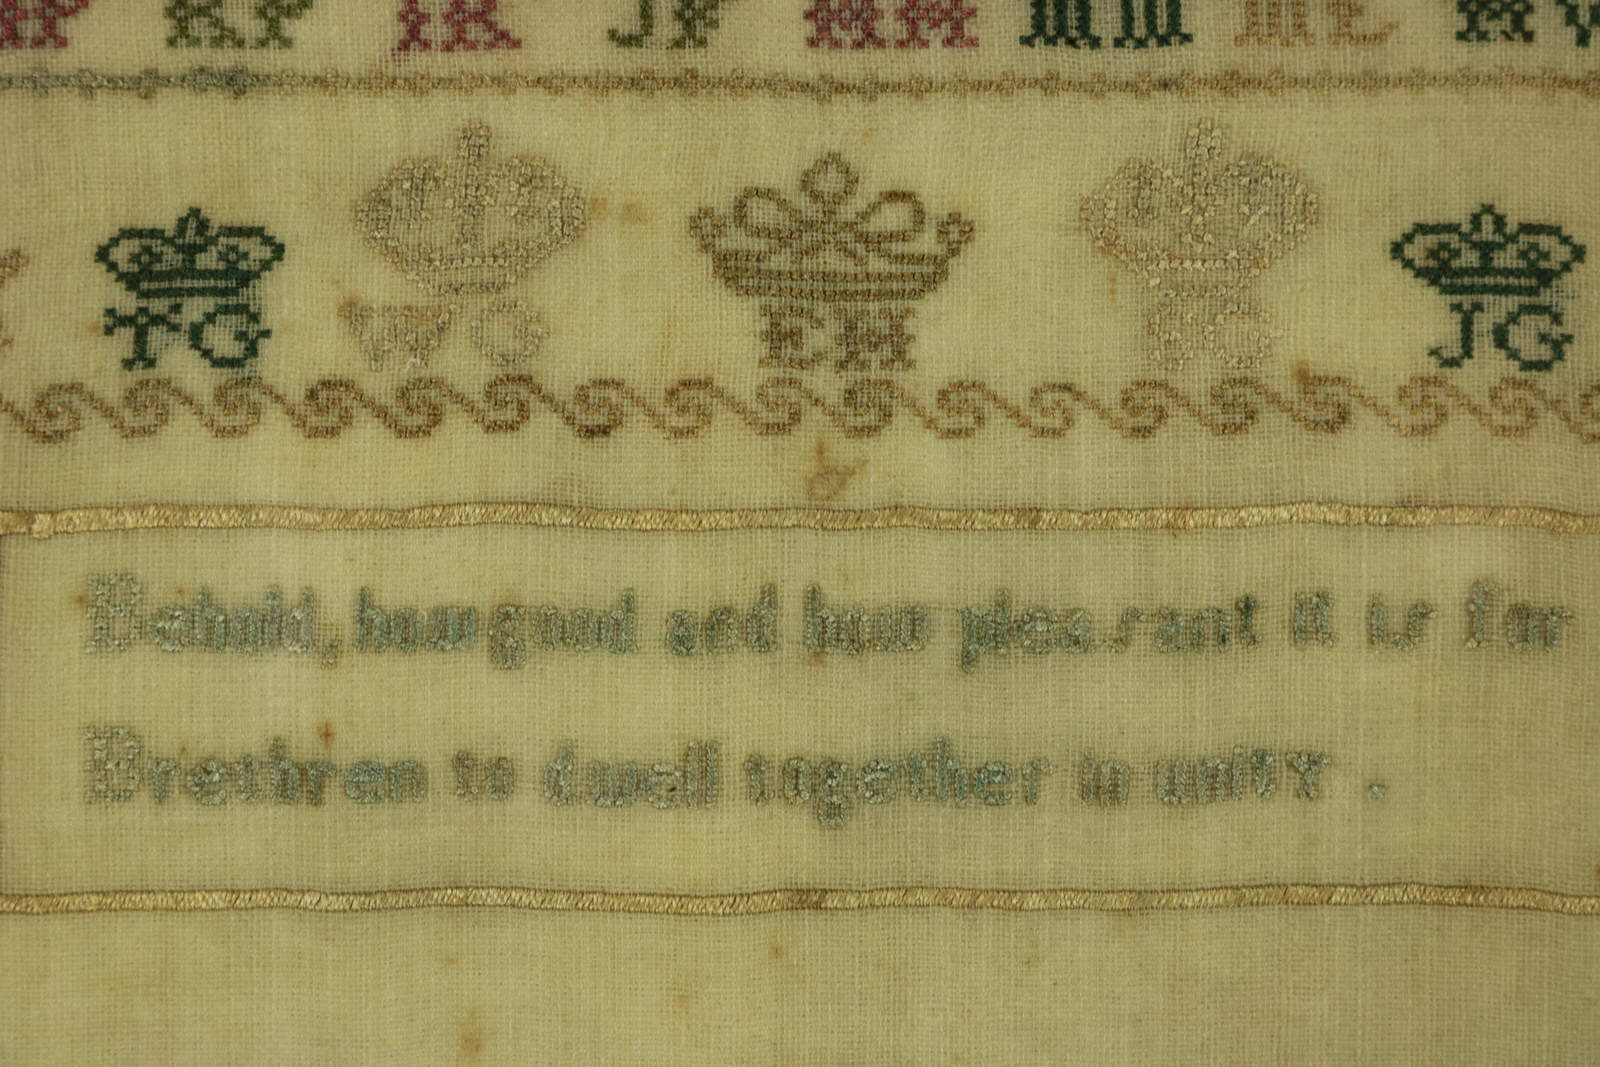 RP IR JP MM ML
TG WG EH JG
Behold, how good and how pleasant it is for
Brethren to dwell together in unity .